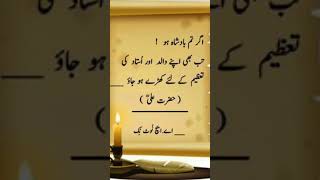 اگر تم بادشاہ ہو !
تب بھی اپنے والد اور اُستاد کی
تعظیم کے لئے کھڑے ہو جاؤ ___
( حضرت علیؓ )
__ اے ایچ نوٹ بک